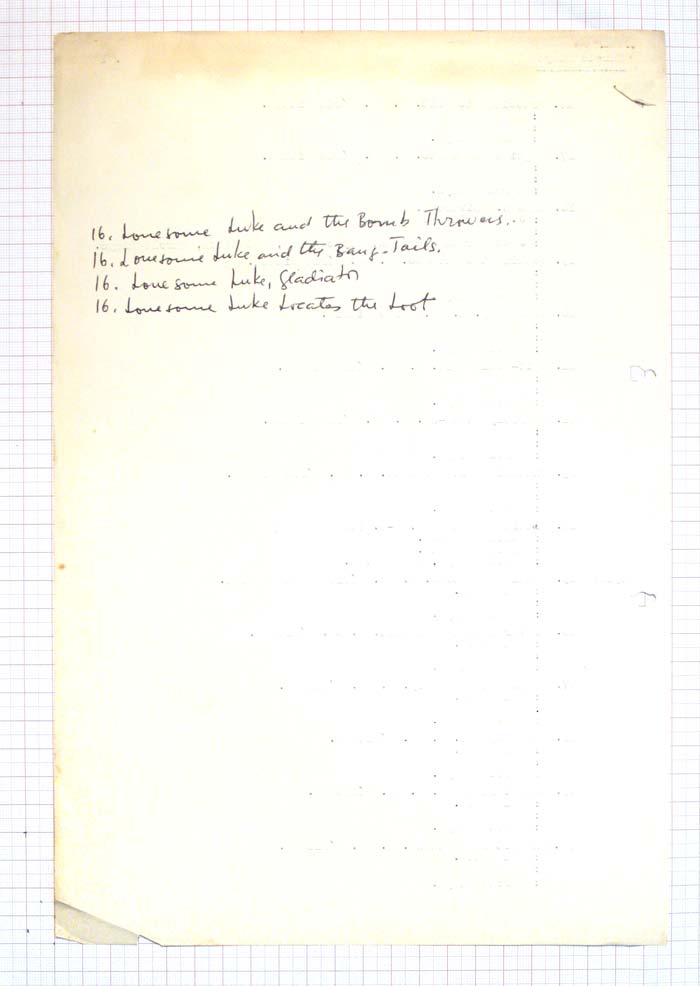 16. Lonesome Luke and the Bomb Throwers.
16. Lonesome Luke and the Bang-Tails.
16. Lonesome Luke, Gladiator
16. Lonesome Luke Locates the Loot